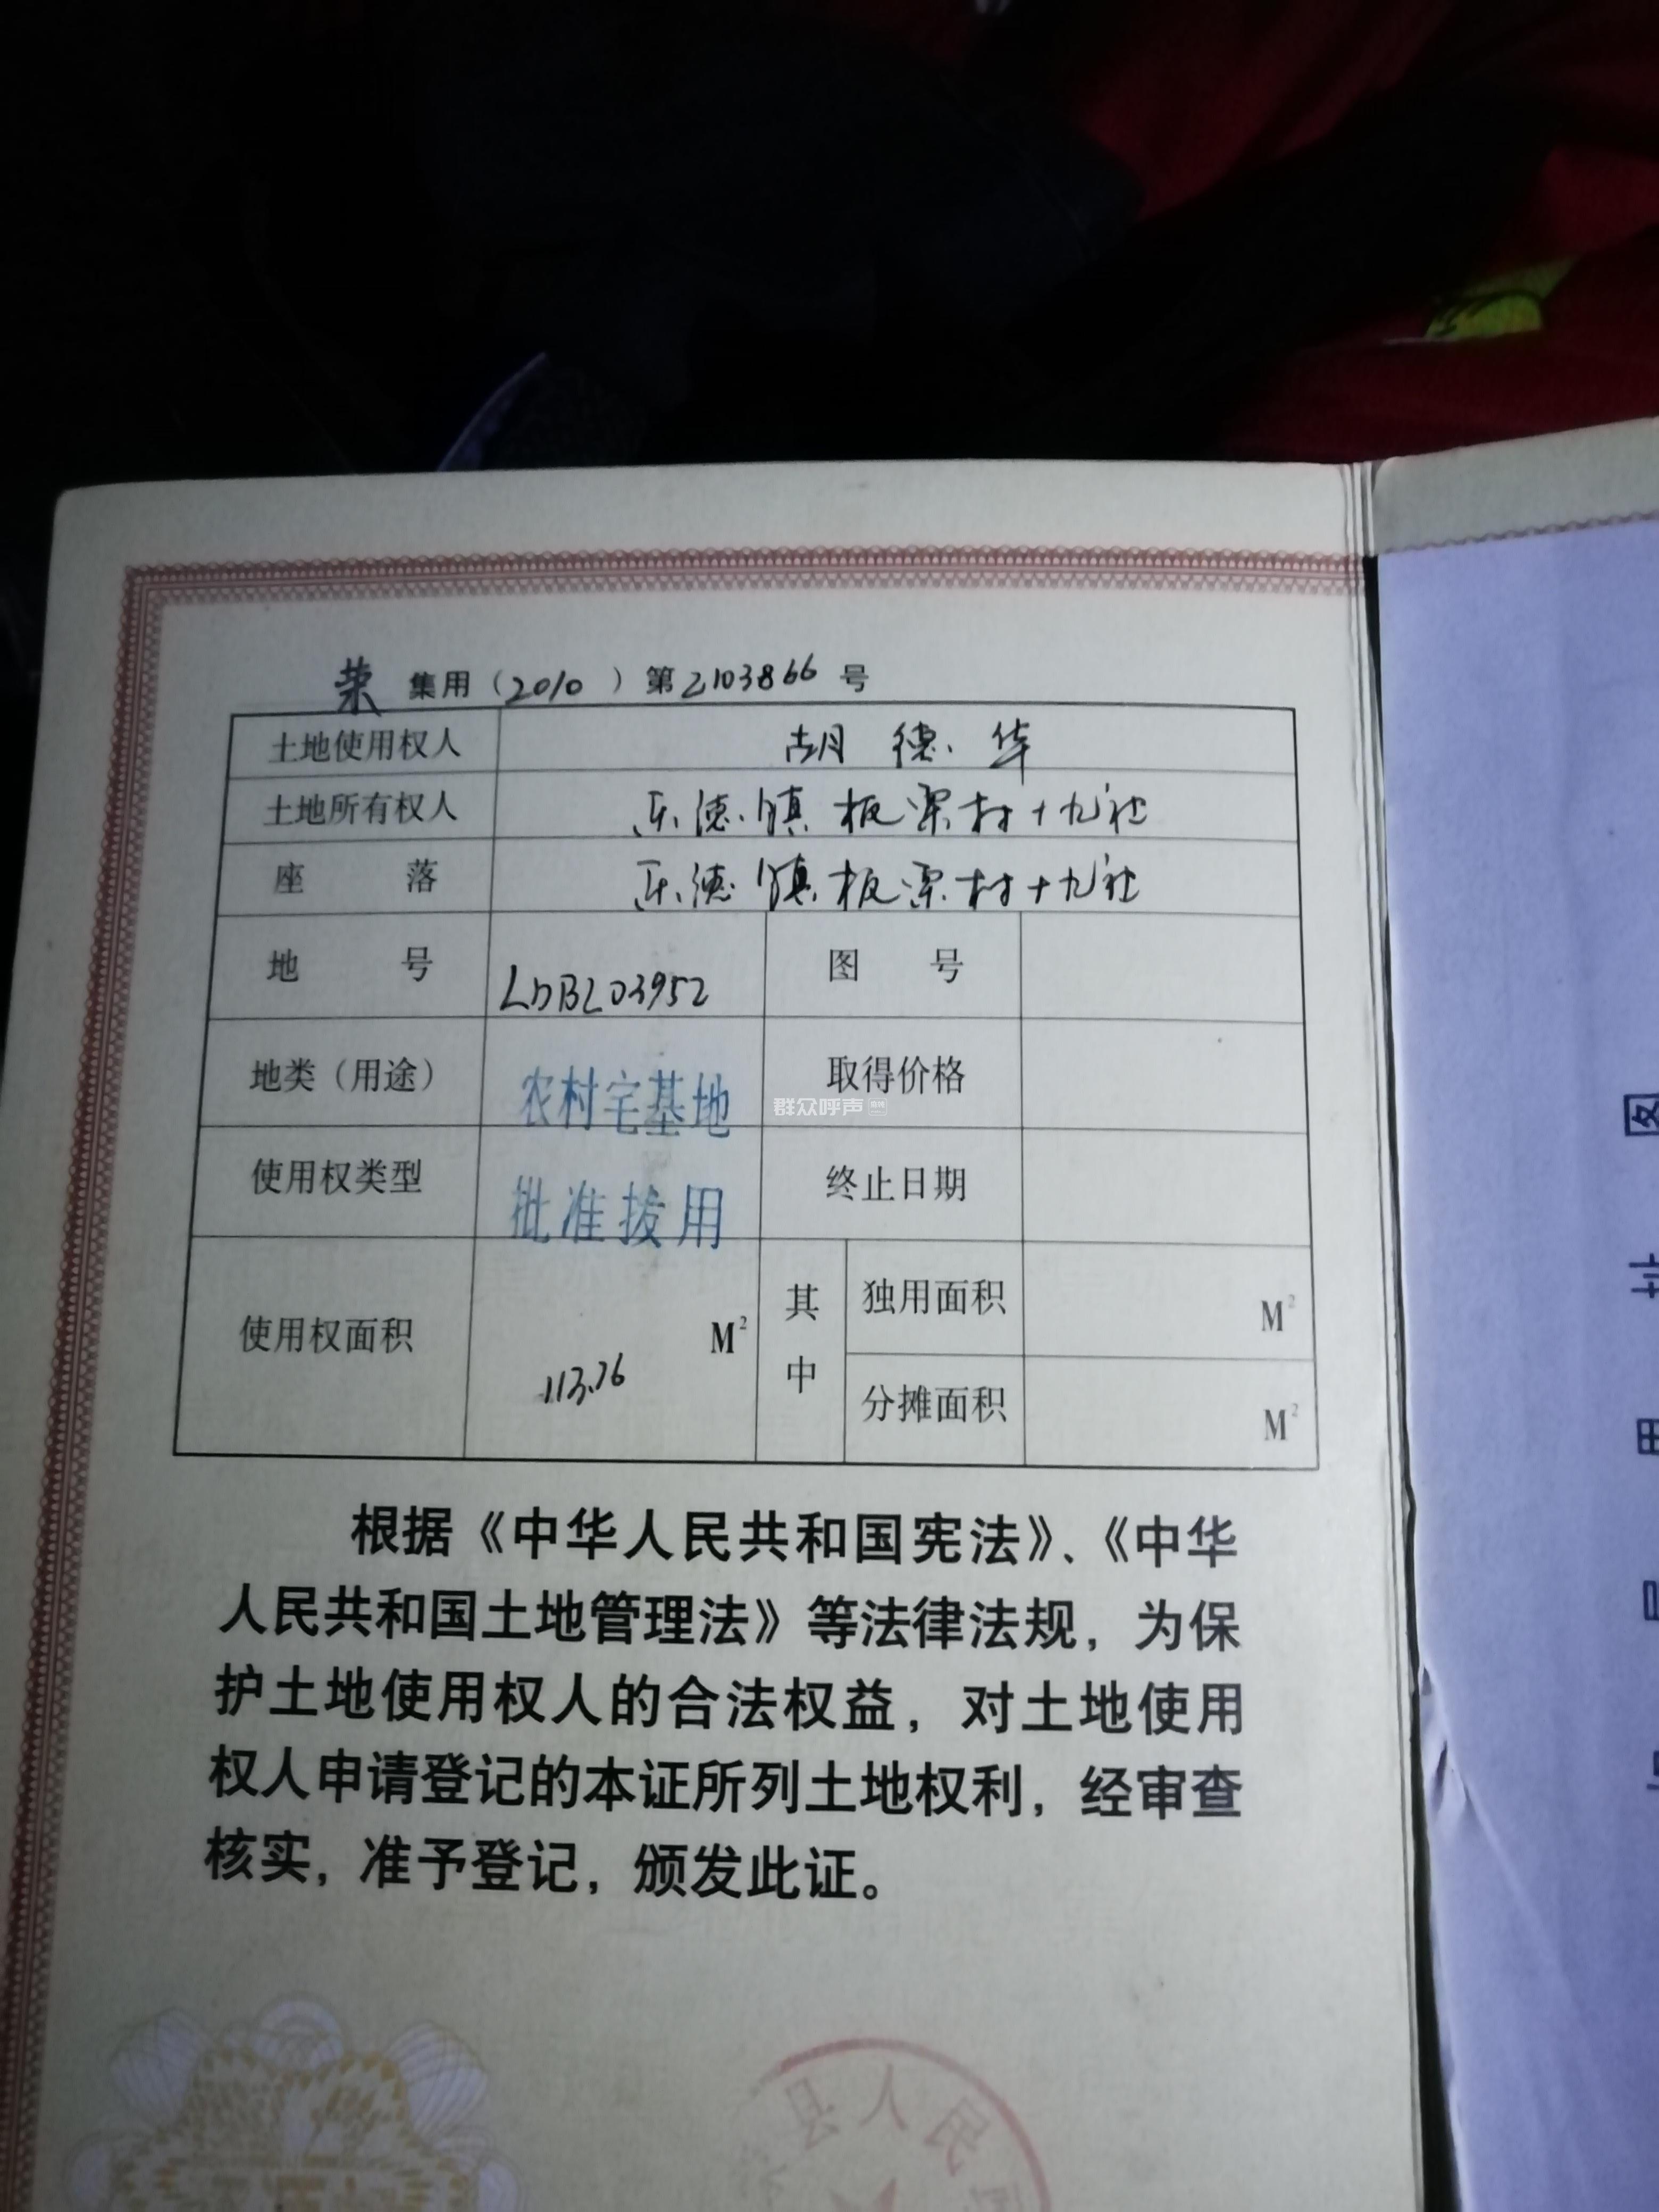 荣 集用（2010）第2103866号
土地使用权人 胡德华
土地所有权人 乐德镇板栗村十九社
座落 乐德镇板栗村十九社
地号 LDBL03952 图号
地类（用途） 农村宅基地 取得价格
群众呼声
使用权类型 批准拨用 终止日期
使用权面积 113.76 M² 其中 独用面积 M²
分摊面积 M²
根据《中华人民共和国宪法》、《中华
人民共和国土地管理法》等法律法规，为保
护土地使用权人的合法权益，对土地使用
权人申请登记的本证所列土地权利，经审查
核实，准予登记，颁发此证。
县人民